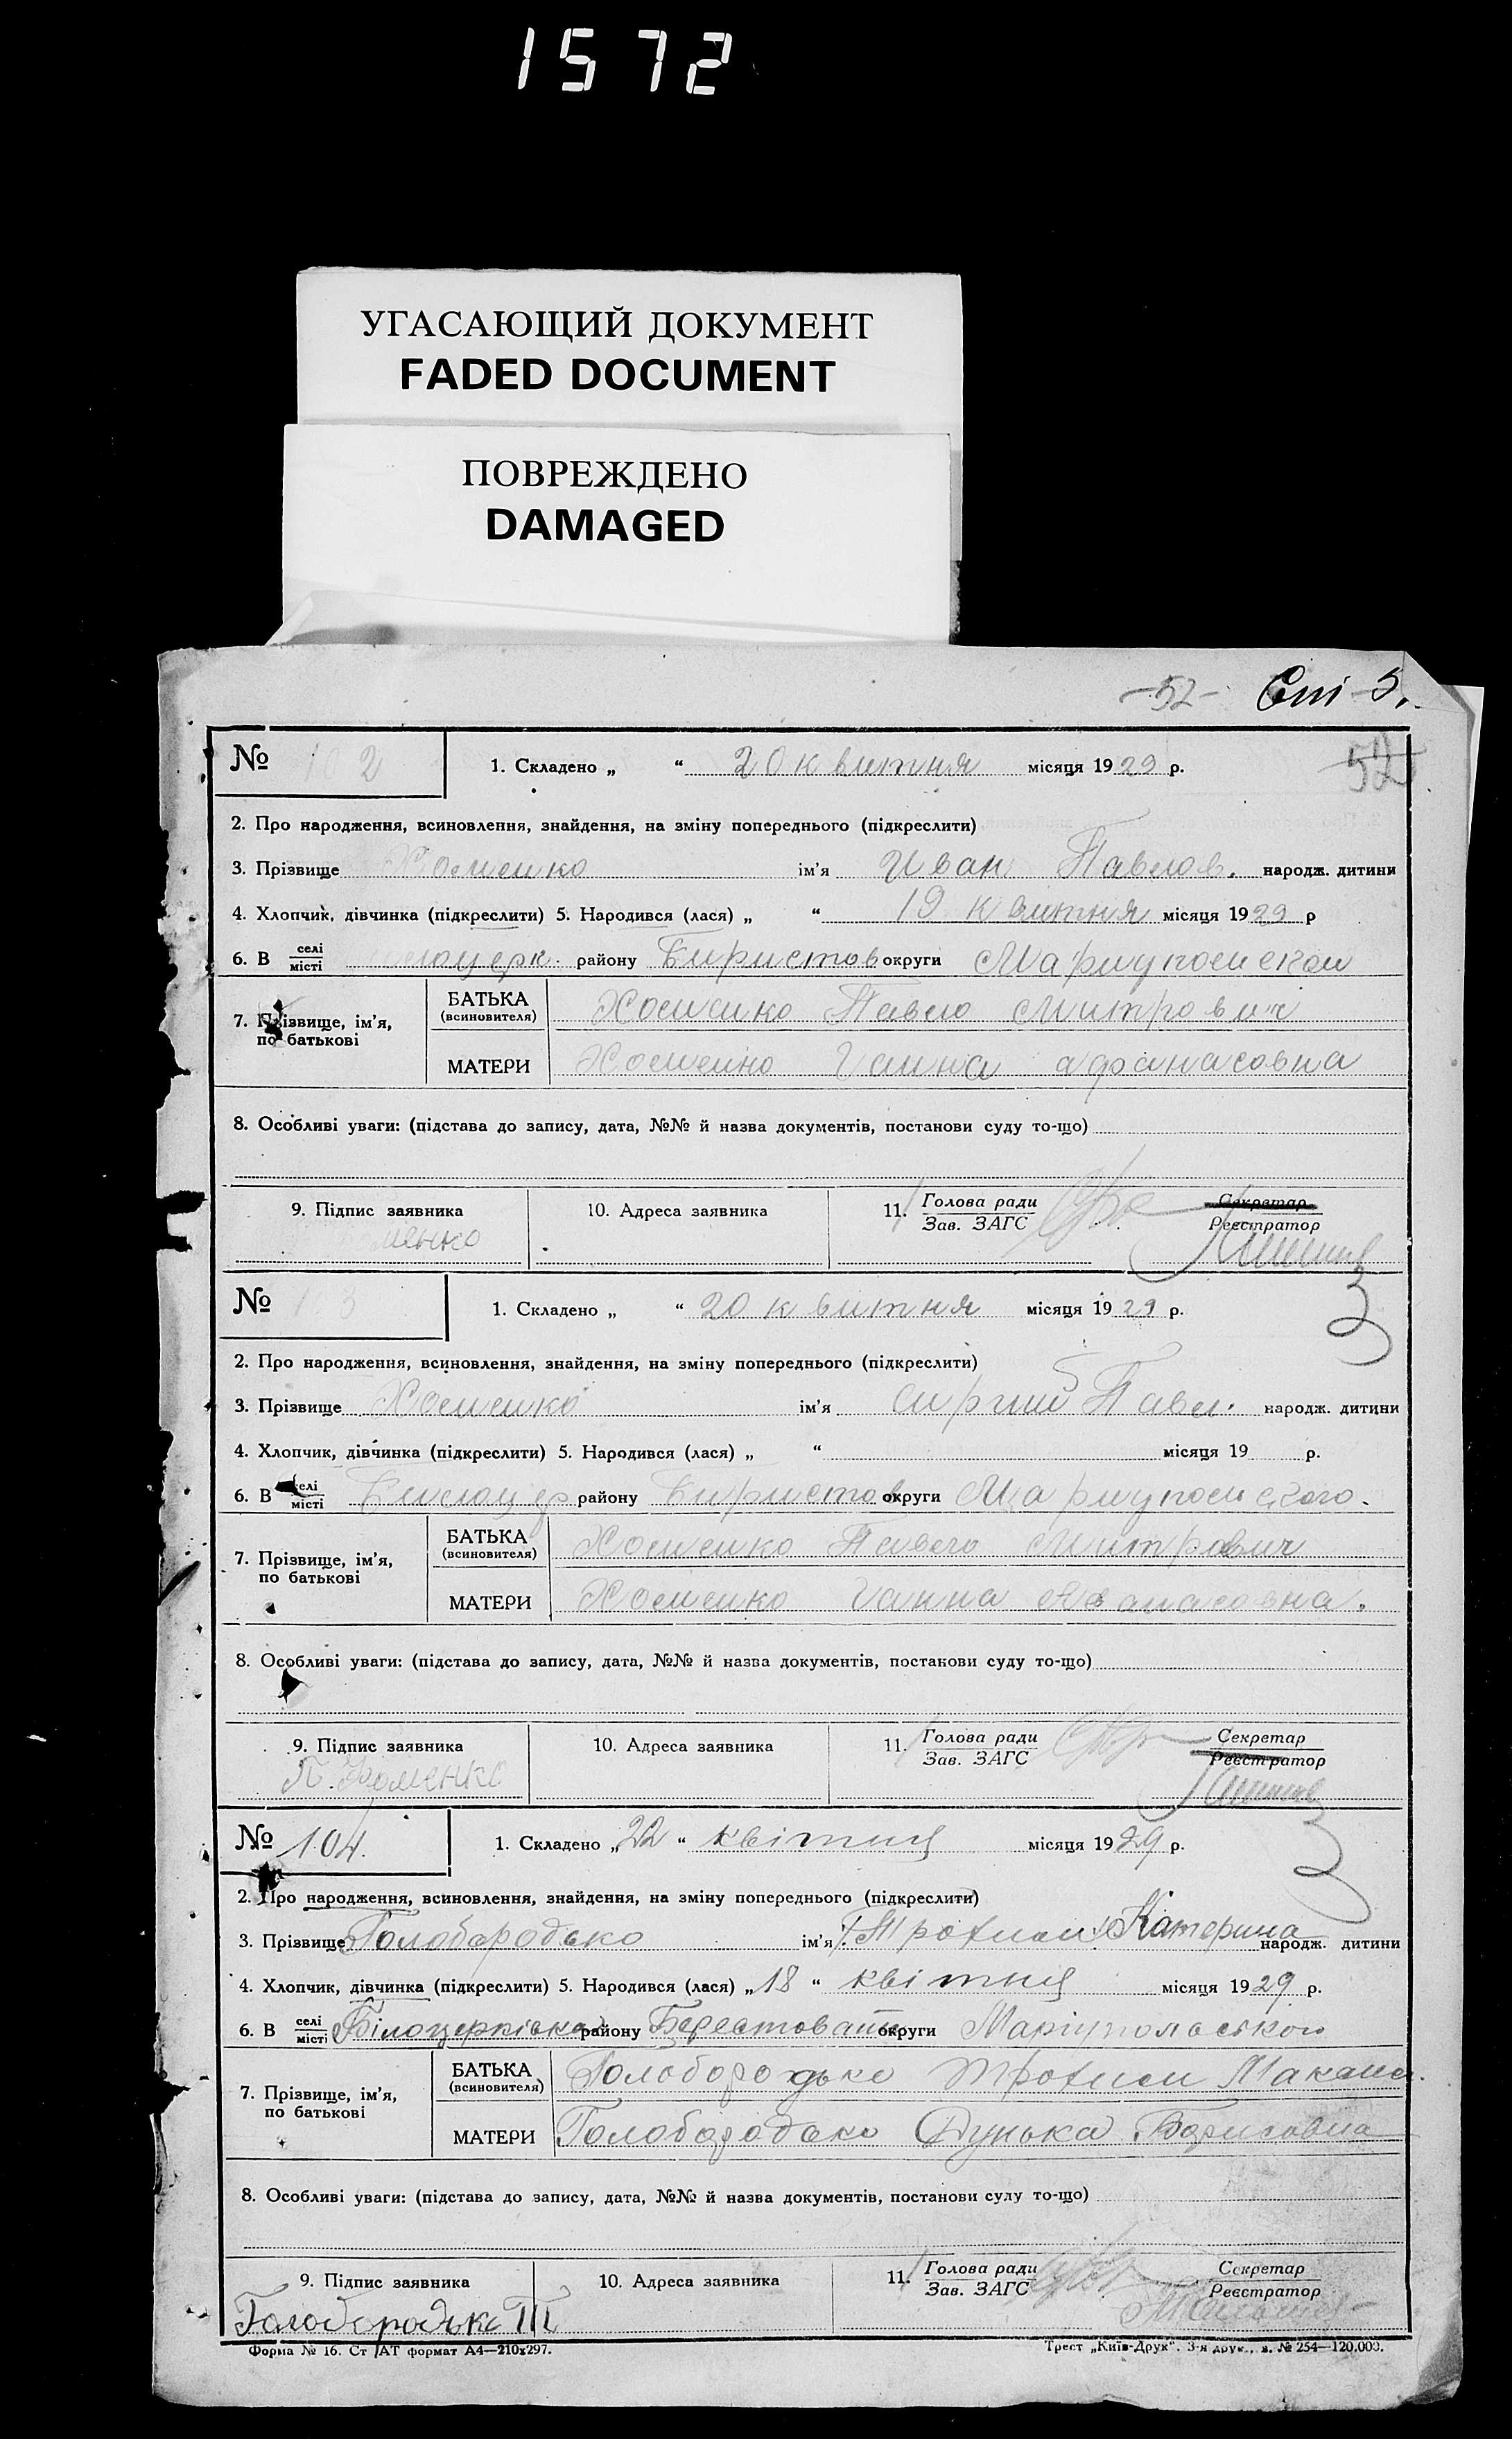 1572
УГАСАЮЩИЙ ДОКУМЕНТ
FADED DOCUMENT
ПОВРЕЖДЕНО
DAMAGED
-52-
52
№ 102 1. Складено „ “ 20 квитня місяця 1929 р.
2. Про народження, всиновлення, знайдення, на зміну попереднього (підкреслити)
3. Прізвище Хоменко ім'я Иван Павлов. народж. дитини
4. Хлопчик, дівчинка (підкреслити) 5. Народився (лася) „ “ 19 квитня місяця 1929 р
6. В селі місті району Биристов округи
7. Прізвище, ім'я, по батькові
БАТЬКА (всиновителя) Хоменко Павло Митрович
МАТЕРИ Хоменко Ганна афанасовна
8. Особливі уваги: (підстава до запису, дата, №№ й назва документів, постанови суду то-що)
9. Підпис заявника 10. Адреса заявника 11. Голова ради Зав. ЗАГС Секретар Реєстратор
№ 103 1. Складено „ “ 20 квитня місяця 1929 р.
2. Про народження, всиновлення, знайдення, на зміну попереднього (підкреслити)
3. Прізвище Хоменко ім'я Сиргий Павл. народж. дитини
4. Хлопчик, дівчинка (підкреслити) 5. Народився (лася) „ “ місяця 19 р.
6. В селі місті району Биристов округи
7. Прізвище, ім'я, по батькові
БАТЬКА (всиновителя) Хоменко Павло Митрович
МАТЕРИ Хоменко Ганна
8. Особливі уваги: (підстава до запису, дата, №№ й назва документів, постанови суду то-що)
9. Підпис заявника 10. Адреса заявника 11. Голова ради Зав. ЗАГС Секретар Реєстратор
П. Хоменко
№ 104. 1. Складено „22“ квітня місяця 1929 р.
2. Про народження, всиновлення, знайдення, на зміну попереднього (підкреслити)
3. Прізвище Голобородько ім'я Катерина народж. дитини
4. Хлопчик, дівчинка (підкреслити) 5. Народився (лася) „18“ квітня місяця 1929 р.
6. В селі місті Білоцерківка району округи Маріупольської
7. Прізвище, ім'я, по батькові
БАТЬКА (всиновителя) Голобородько Трохим
МАТЕРИ Голобородько Дунька Борисовна
8. Особливі уваги: (підстава до запису, дата, №№ й назва документів, постанови суду то-що)
9. Підпис заявника 10. Адреса заявника 11. Голова ради Зав. ЗАГС Секретар Реєстратор
Голобородько Т
Форма № 16. Ст АТ формат А4—210х297. Трест „Київ-Друк“. 3-я друк., з. № 254—120.000.